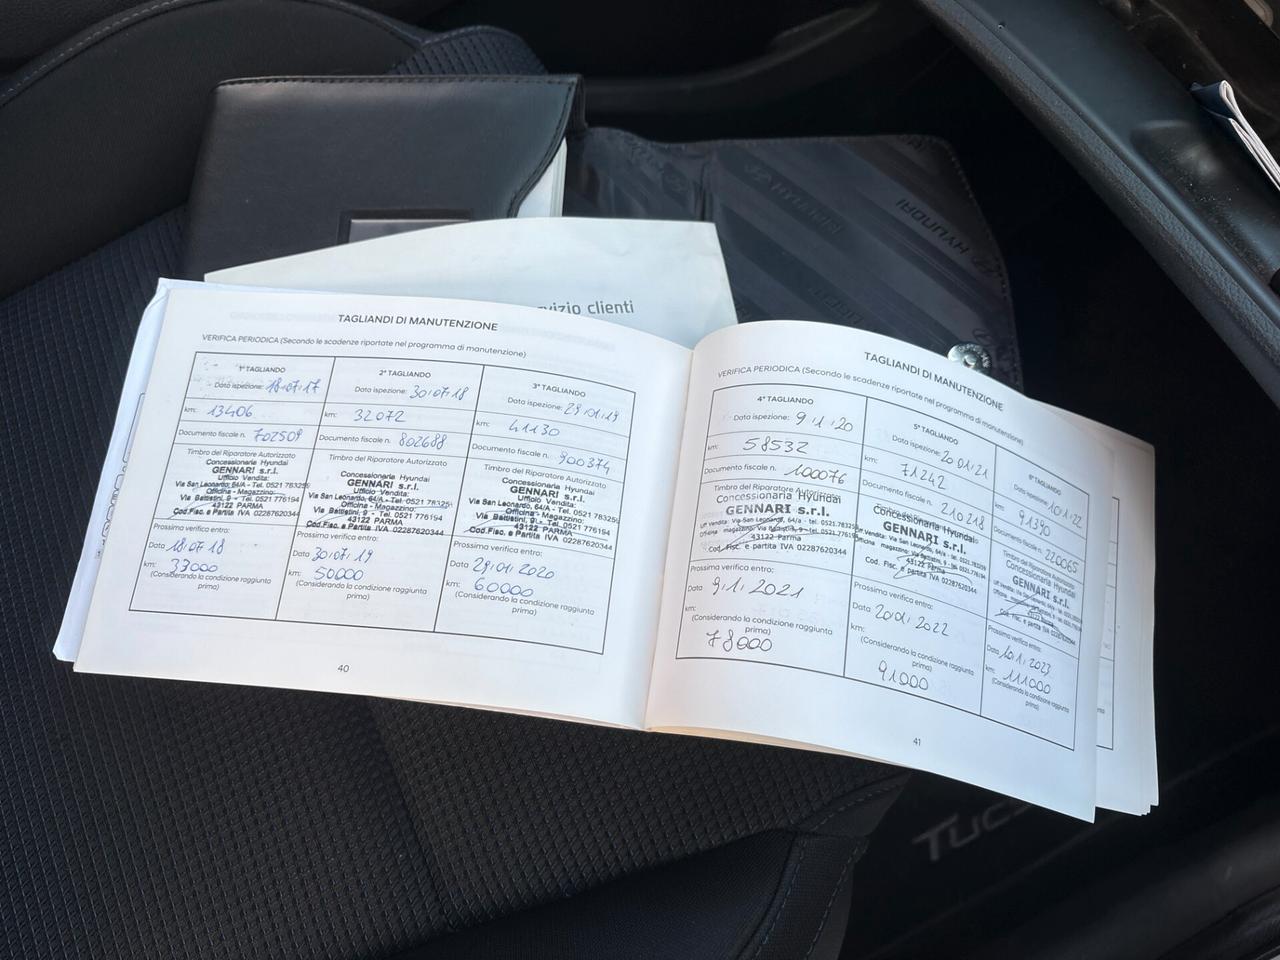 HYUNDAI
HYUNDAI
vizio clienti
TAGLIANDI DI MANUTENZIONE
VERIFICA PERIODICA (Secondo le scadenze riportate nel programma di manutenzione)
1° TAGLIANDO
Data ispezione: 18.07.17
km: 13406
Documento fiscale n. 702509
Timbro del Riparatore Autorizzato
Concessionaria Hyundai
GENNARI s.r.l.
Ufficio Vendita:
Via San Leonardo, 64/A - Tel. 0521 783259
Officina - Magazzino:
Via Battistini, 9 - Tel. 0521 776194
43122 PARMA
Cod.Fisc. e Partita IVA 02287620344
Prossima verifica entro:
Data 18.07.18
km: 33000
(Considerando la condizione raggiunta
prima)
2° TAGLIANDO
Data ispezione: 30.07.18
km: 32072
Documento fiscale n. 802688
Timbro del Riparatore Autorizzato
Concessionaria Hyundai
GENNARI s.r.l.
Ufficio Vendita:
Via San Leonardo, 64/A - Tel. 0521 783259
Officina - Magazzino:
Via Battistini, 9 - Tel. 0521 776194
43122 PARMA
Cod.Fisc. e Partita IVA 02287620344
Prossima verifica entro:
Data 30.07.19
km: 50000
(Considerando la condizione raggiunta
prima)
3° TAGLIANDO
Data ispezione: 29.01.19
km: 41130
Documento fiscale n. 900374
Timbro del Riparatore Autorizzato
Concessionaria Hyundai
GENNARI s.r.l.
Ufficio Vendita:
Via San Leonardo, 64/A - Tel. 0521 783259
Officina - Magazzino:
Via Battistini, 9 - Tel. 0521 776194
43122 PARMA
Cod.Fisc. e Partita IVA 02287620344
Prossima verifica entro:
Data 29.01.2020
km: 60000
(Considerando la condizione raggiunta
prima)
40
TAGLIANDI DI MANUTENZIONE
VERIFICA PERIODICA (Secondo le scadenze riportate nel programma di manutenzione)
4° TAGLIANDO
Data ispezione: 9.1.20
km: 58532
Documento fiscale n. 100076
Timbro del Riparatore Autorizzato
Concessionaria Hyundai
GENNARI s.r.l.
Uff Vendita: Via San Leonardo, 64/a - tel. 0521.783259
Officina magazzino: Via Battistini, 9 - tel. 0521.776194
43122 Parma
Cod. Fisc. e partita IVA 02287620344
Prossima verifica entro:
Data 9.1.2021
km:
(Considerando la condizione raggiunta
prima)
78000
5° TAGLIANDO
Data ispezione: 20.01.21
km: 71242
Documento fiscale n. 210218
Concessionaria Hyundai
GENNARI s.r.l.
Uff Vendita: Via San Leonardo, 64/a - tel. 0521.783259
Officina magazzino: Via Battistini, 9 - tel. 0521.776194
43122 Parma
Cod. Fisc. e partita IVA 02287620344
Prossima verifica entro:
Data 20.01.2022
km:
(Considerando la condizione raggiunta
prima)
91000
6° TAGLIANDO
Data ispezione: 10.1.22
km: 91390
Documento fiscale n. 220065
Timbro del Riparatore Autorizzato
Concessionaria Hyundai
GENNARI s.r.l.
Cod. Fisc. e partita IVA 02287620344
Prossima verifica entro:
Data 10.1.2023
km: 111000
(Considerando la condizione raggiunta
prima)
41
TUCS